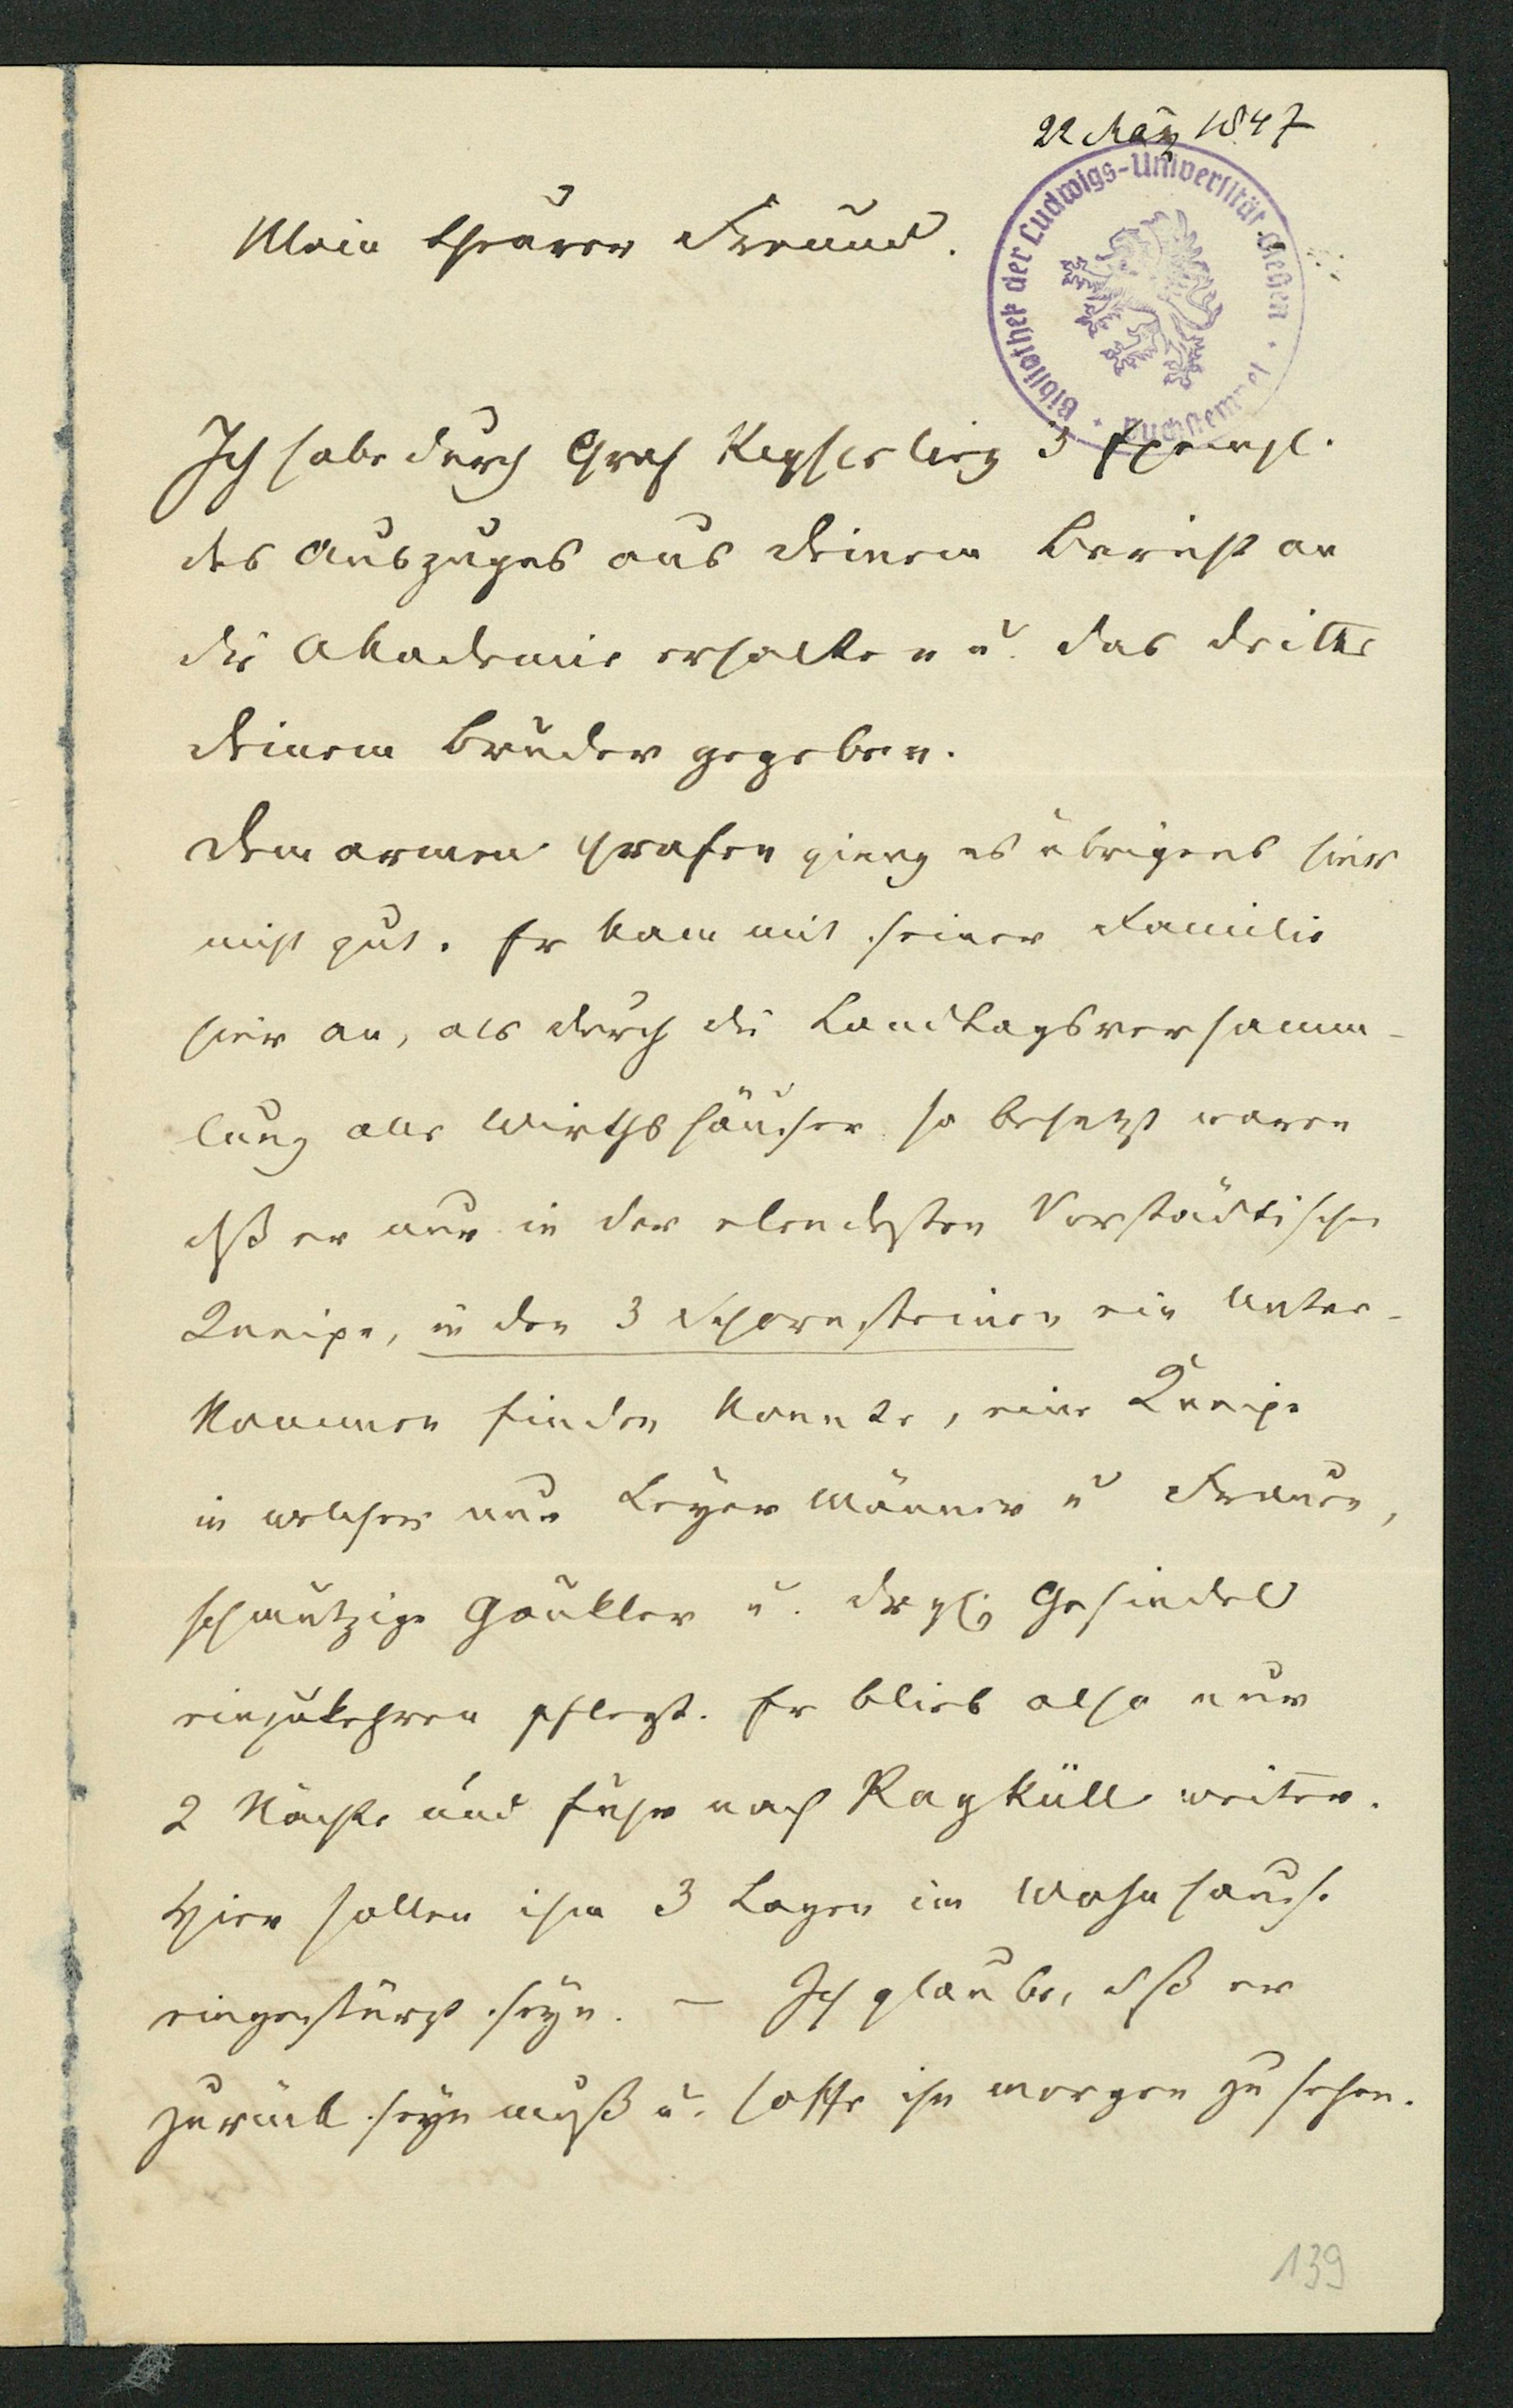 22 März 1847
Bibliothek der Ludwigs-Universität Gießen · Buchstempel ·
Mein theurer Freund.
Ich habe durch Graf Keyserling 3 Exempl.
des Auszuges aus Deinem Bericht an
die Akademie erhalten u. das dritte
Deinem Bruder gegeben.
Dem armen Grafen gieng es übrigens hier
nicht gut. Er kam mit seiner Familie
hier an, als durch die Landtagsversamm-
lung alle Wirthshäuser so besetzt waren
dß er nur in der elendesten Vorstädtischen
Kneipe, in den 3 Schornsteinen ein Unter-
kommen finden konnte, eine Kneipe
in welcher nur Leyer Männer u Frauen,
schmutzige Gaukler u. drgl. Gesindel
einzukehren pflegt. Er blieb also nur
2 Nächte und fuhr nach Rayküll weiter.
Hier sollen ihm 3 Lagen im Wohnhause
eingestürzt seyn. – Ich glaube, dß er
zurück seyn muß u. hoffe ihn morgen zu sehen.
139